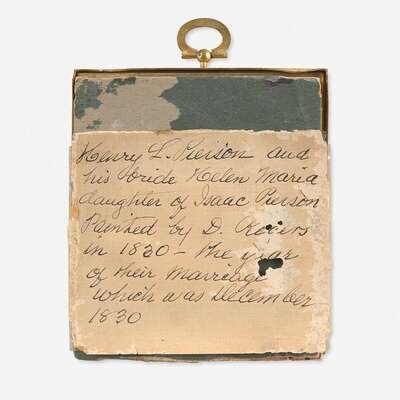 Henry L. Pierson and
his bride Helen Maria
daughter of Isaac Pierson
Painted by D. Rogers
in 1830 – the year
of their marriage
which was December
1830